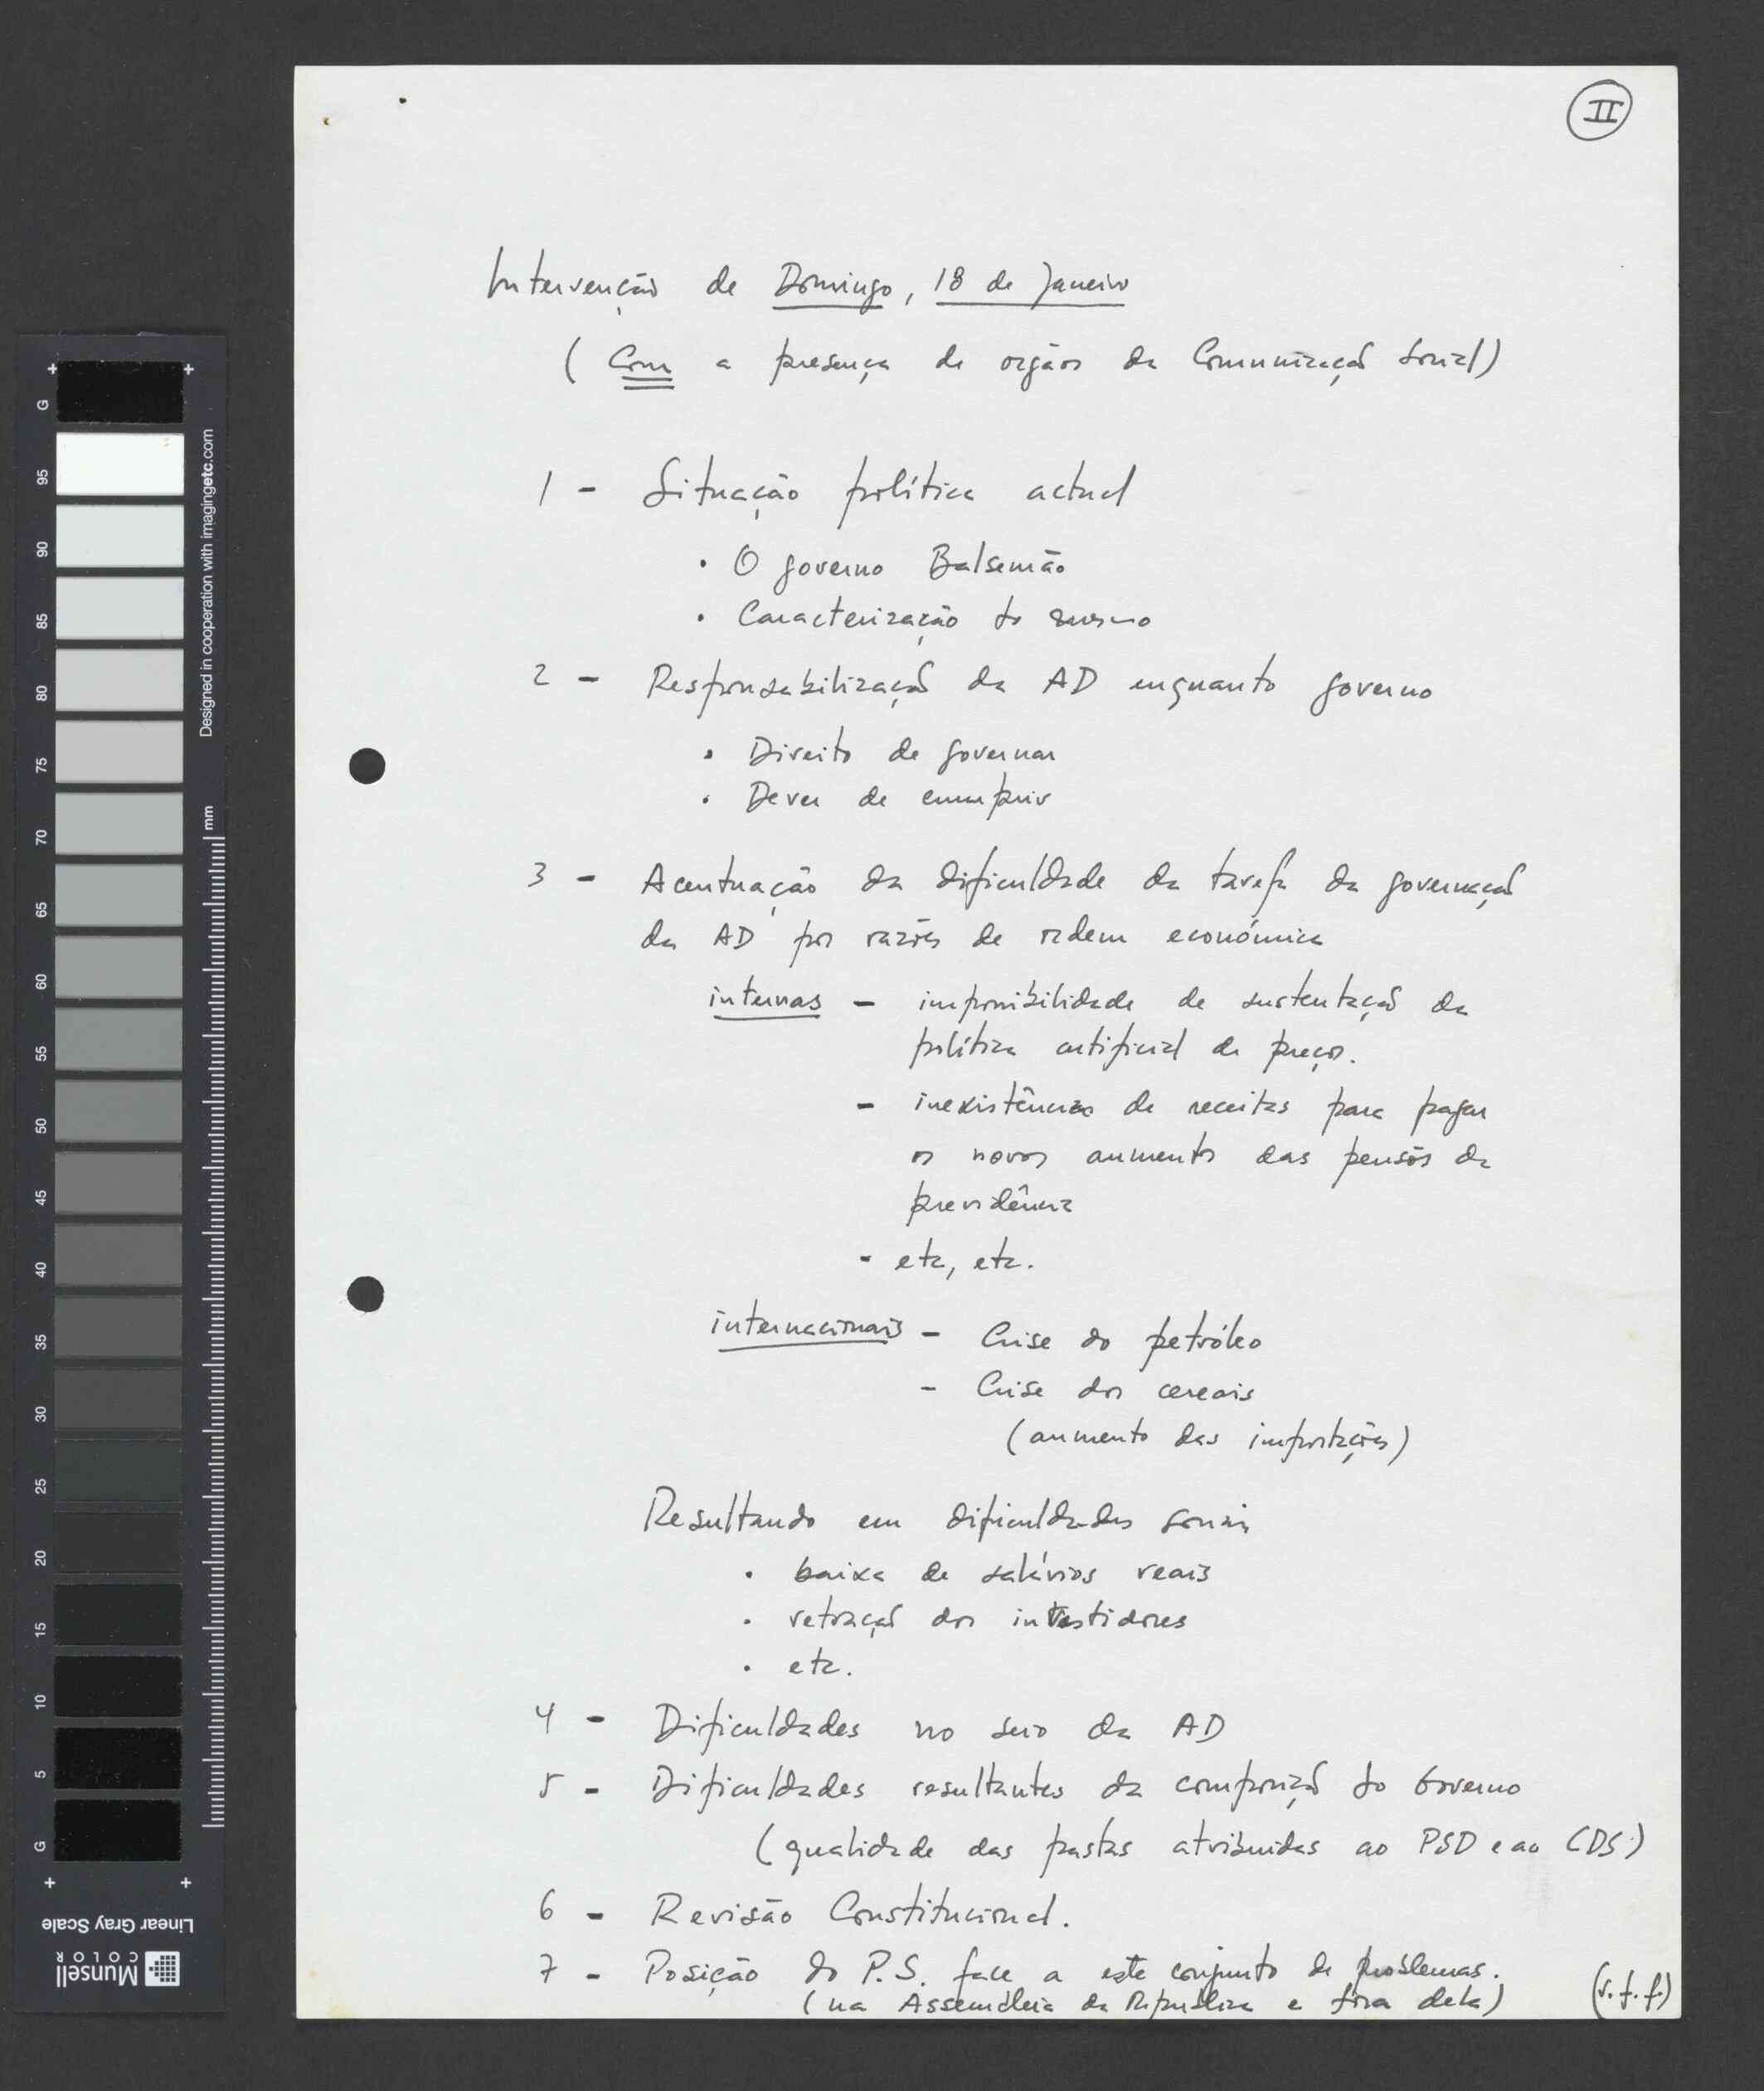 II
Intervenção de Domingo, 18 de Janeiro
( Com a presença de orgãos da Comunicação Social)
1 - Situação política actual
· O governo Balsemão
· Caracterização do mesmo
2 - Responsabilização da AD enquanto governo
· Direito de governar
· Dever de cumprir
3 - Acentuação da dificuldade da tarefa da governação
da AD por razões de ordem económica
internas - impossibilidade de sustentação da
política artificial de preços.
- inexistência de receitas para pagar
os novos aumentos das pensões da
previdência
- etc, etc.
internacionais - Crise do petróleo
- Crise dos cereais
(aumento das importações)
Resultando em dificuldades sociais
· baixa de salários reais
· retracção dos investidores
· etc.
4 - Dificuldades no seio da AD
5 - Dificuldades resultantes da composição do Governo
(qualidade das pastas atribuidas ao PSD e ao CDS)
6 - Revisão Constitucional.
7 - Posição do P.S. face a este conjunto de problemas.
(na Assembleia da República e fora dela)
(v.f.f.)
G
95
90
85
80
75
70
65
60
55
50
45
40
35
30
25
20
15
10
5
G
Designed in cooperation with imagingetc.com
mm
Linear Gray Scale
Munsell
COLOR